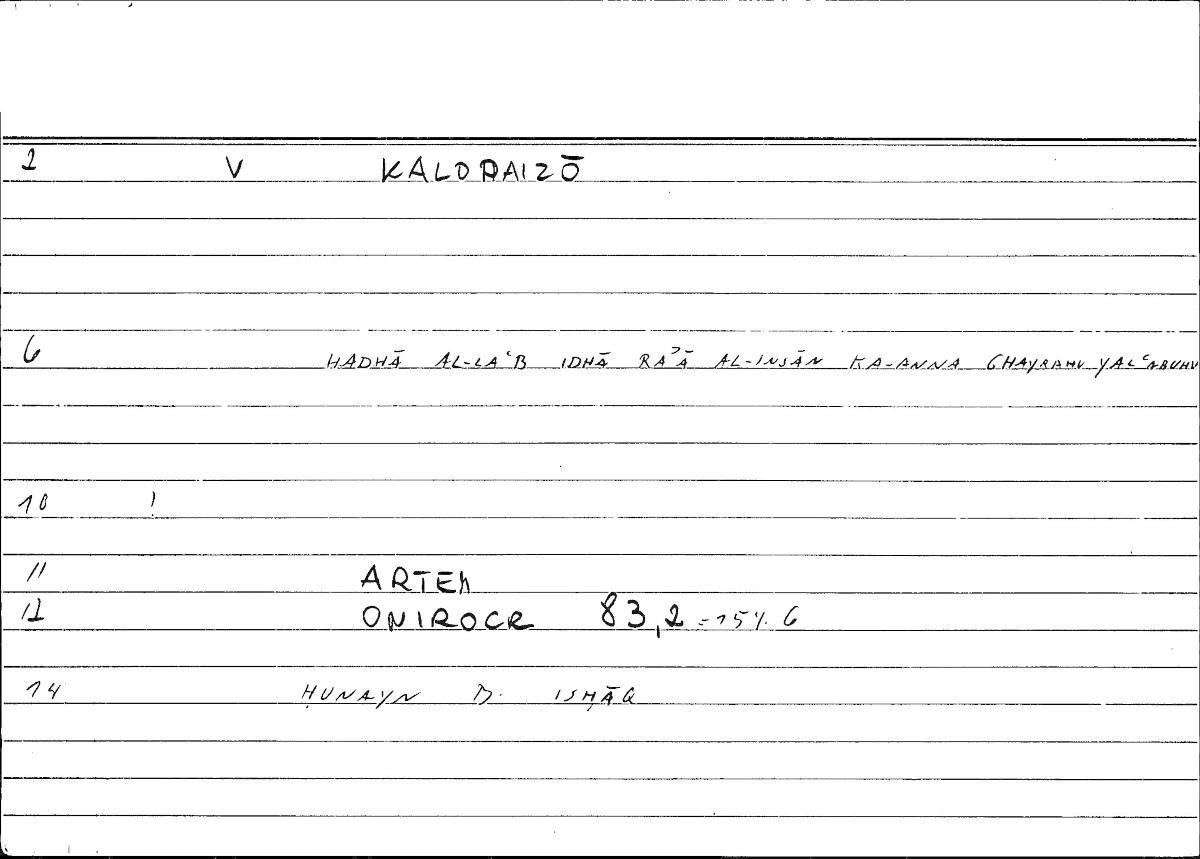 2 V KALOPAIZŌ
6 HADHĀ AL-LAʿB IDHĀ RAʾĀ AL-INSĀN KA-ANNA GHAYRAHU YALʿABUHU
10 !
11 ARTEM
12 ONIROCR 83,2 = 154. 6
14 ḤUNAYN B. ISḤĀQ